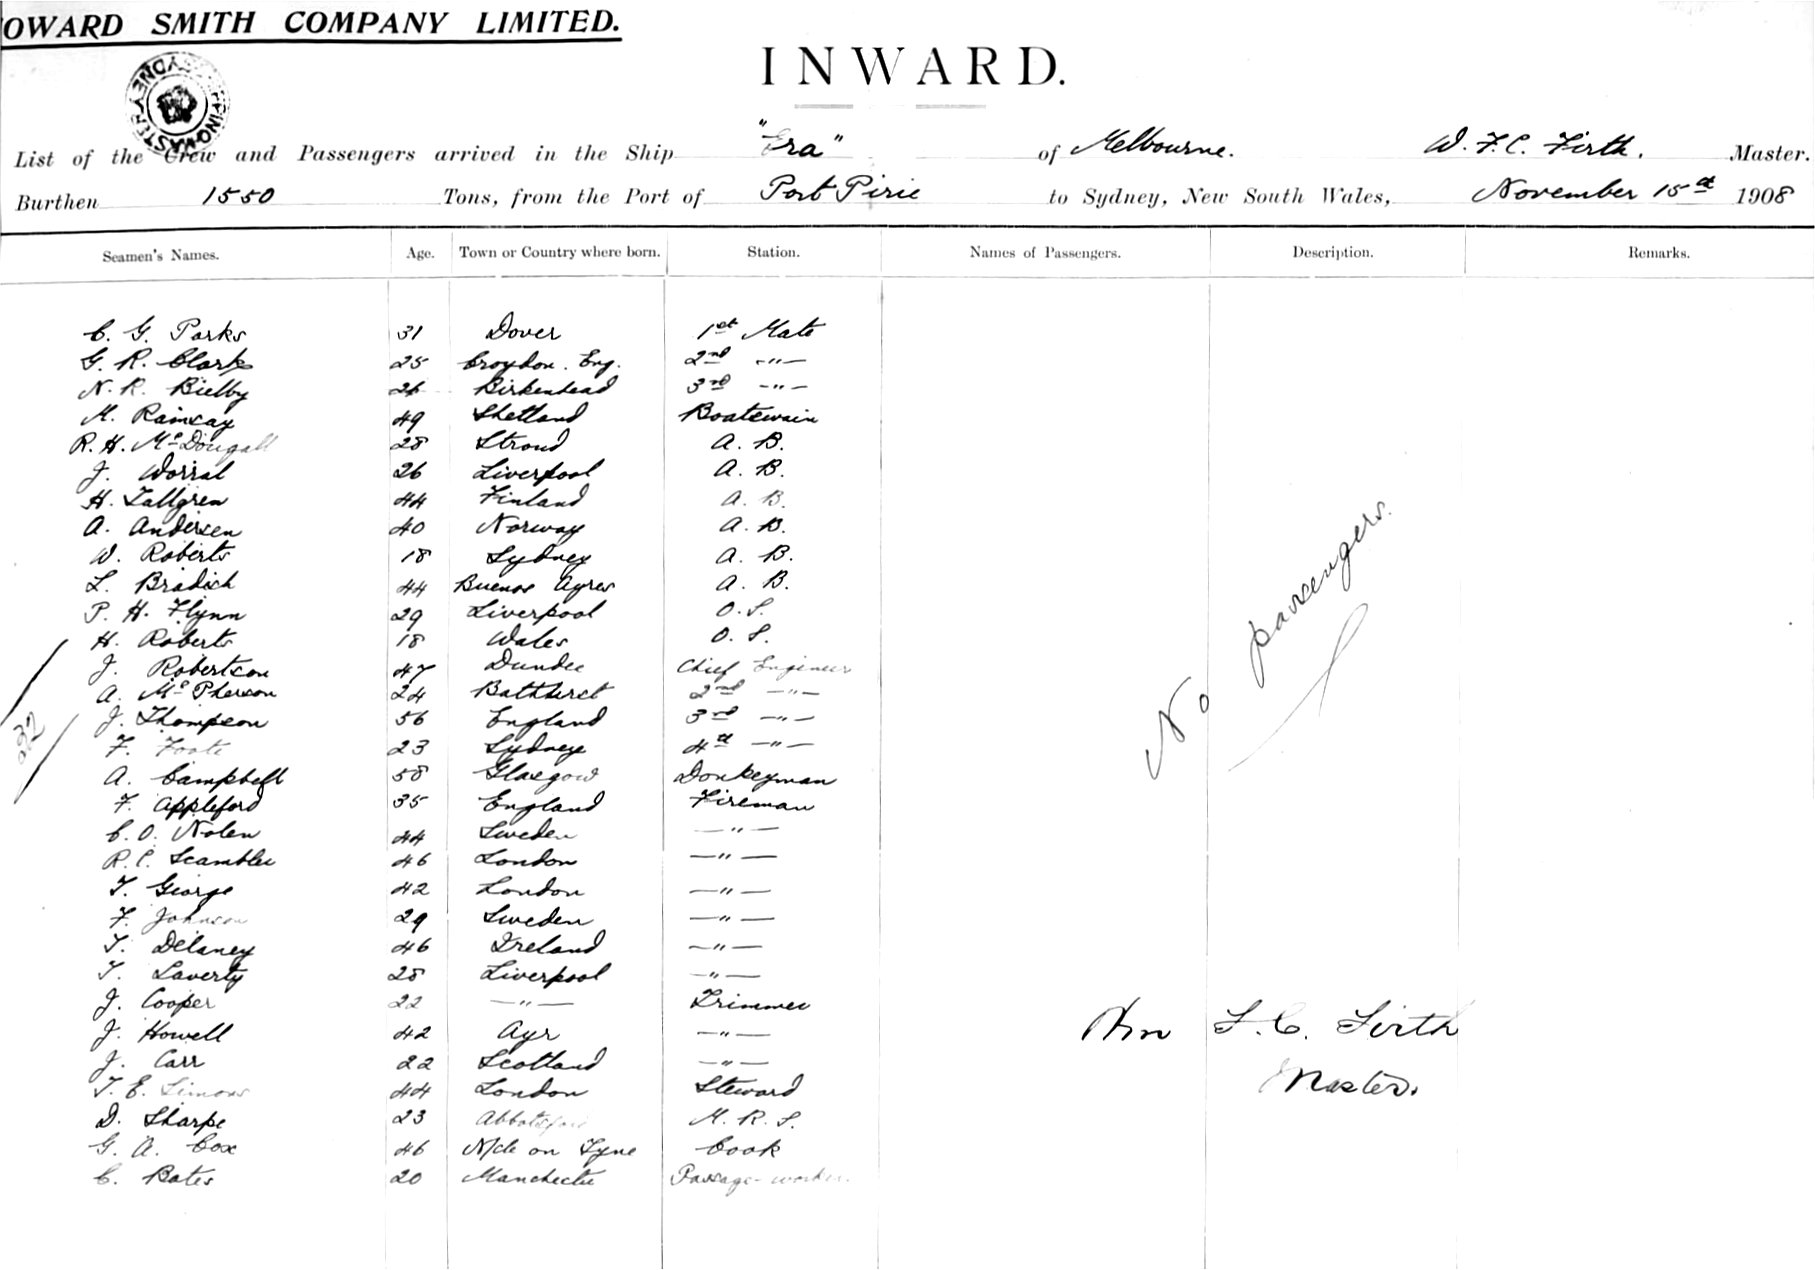 OWARD SMITH COMPANY LIMITED.
INWARD.
SHIPPING MASTER SYDNEY
List of the Crew and Passengers arrived in the Ship "Era" of Melbourne. W. F. C. Firth. Master.
Burthen 1550 Tons, from the Port of Port Pirie to Sydney, New South Wales, November 15th 1908
Seamen's Names. Age. Town or Country where born. Station. Names of Passengers. Description. Remarks.
C. G. Parks 31 Dover 1st Mate
G. R. Clark 25 Croydon. Eng. 2nd —"—
N. R. Bielby 26 Birkenhead 3rd —"—
M. Ramsay 49 Shetland Boatswain
R. H. McDougall 28 Stroud A. B.
J. Worral 26 Liverpool A. B.
H. Tallgren 44 Finland A. B.
A. Andersen 40 Norway A. B.
W. Roberts 18 Sydney A. B.
L. Bradich 44 Buenos Ayres A. B.
P. H. Flynn 29 Liverpool O. S.
H. Roberts 18 Wales O. S.
J. Robertson 47 Dundee Chief Engineer
A. McPherson 24 Bathurst 2nd —"—
J. Thompson 56 England 3rd —"—
F. Foote 23 Sydney 4th —"—
A. Campbell 58 Glasgow Donkeyman
F. Appleford 35 England Fireman
C. O. Nolen 44 Sweden —"—
R. C. Scambler 46 London —"—
T. George 42 London —"—
F. Johnson 29 Sweden —"—
T. Delaney 46 Ireland —"—
T. Laverty 28 Liverpool —"—
J. Cooper 22 —"— Trimmer
J. Howell 42 Ayr —"—
J. Carr 22 Scotland —"—
T. E. Simons 44 London Steward
D. Sharpe 23 Abbotsford M. R. S.
G. A. Cox 46 N/cle on Tyne Cook
C. Bates 20 Manchester Passage-worker.
32
No passengers.
Wm F. C. Firth
Master.